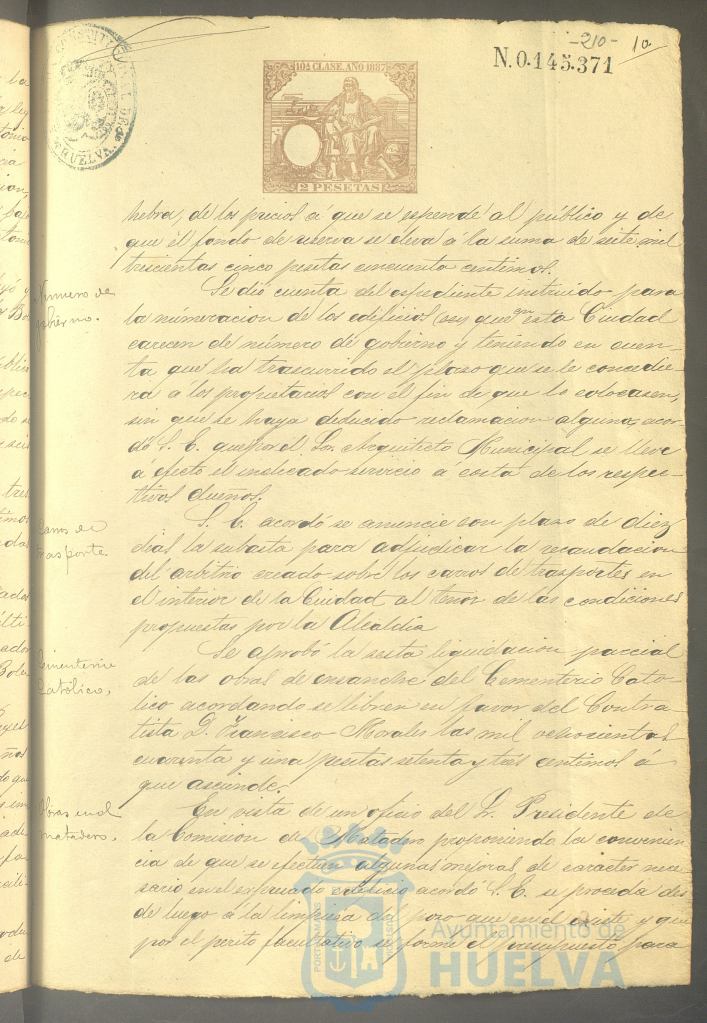 -210- 10
N.0.145.371
10ª CLASE. AÑO 1887
2 PESETAS
HUELVA
hebra, de los precios á que se espende al público y de
que el fondo de reserva se eleva á la suma de siete mil
trescientas cinco pesetas cincuenta centimos.
Numero de
gobierno.
Se dió cuenta del espediente instruido para
la númeracion de los edificios que en esta Ciudad
carecen de número de gobierno y teniendo en cuen-
ta que ha trascurrido el plazo que se le concedie-
ra á los propietarios con el fin de que lo colocasen,
sin que se haya deducido reclamacion alguna, acor-
dó S. E. que por el Sr. Arquitecto Municipal se lleve
a efecto el indicado servicio á costa de los respec-
tivos dueños.
Carros de
trasporte.
S. E. acordó se anuncie con plazo de diez
dias la subasta para adjudicar la recaudacion
del arbitrio creado sobre los carros de trasportes en
el interior de la Ciudad al tenor de las condiciones
propuestas por la Alcaldia
Cementerio
Católico,
Se aprobó la sesta liquidacion parcial
de las obras de ensanche del Cementerio Cato-
lico acordando se libren en favor del Contra-
tista D. Francisco Morales las mil ochocientas
cuarenta y una pesetas setenta y tres centimos á
que asciende.
Obras en el
matadero.
En vista de un oficio del Sr. Presidente de
la Comision de Matadero proponiendo la convenien-
cia de que se efectuen algunas mejoras de caracter nece-
sario en el espresado edificio acordó S. E. se proceda des-
de luego á la limpieza del pozo que en el existe y que
por el perito facultativo se forme el presupuesto para
Ayuntamiento de
HUELVA